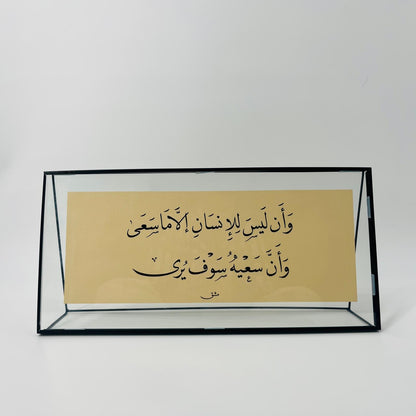 وَأَن لَيسَ لِلإِنسَانِ إِلَّا مَا سَعَى
وَأَنَّ سَعيَهُ سَوفَ يُرى
مشق